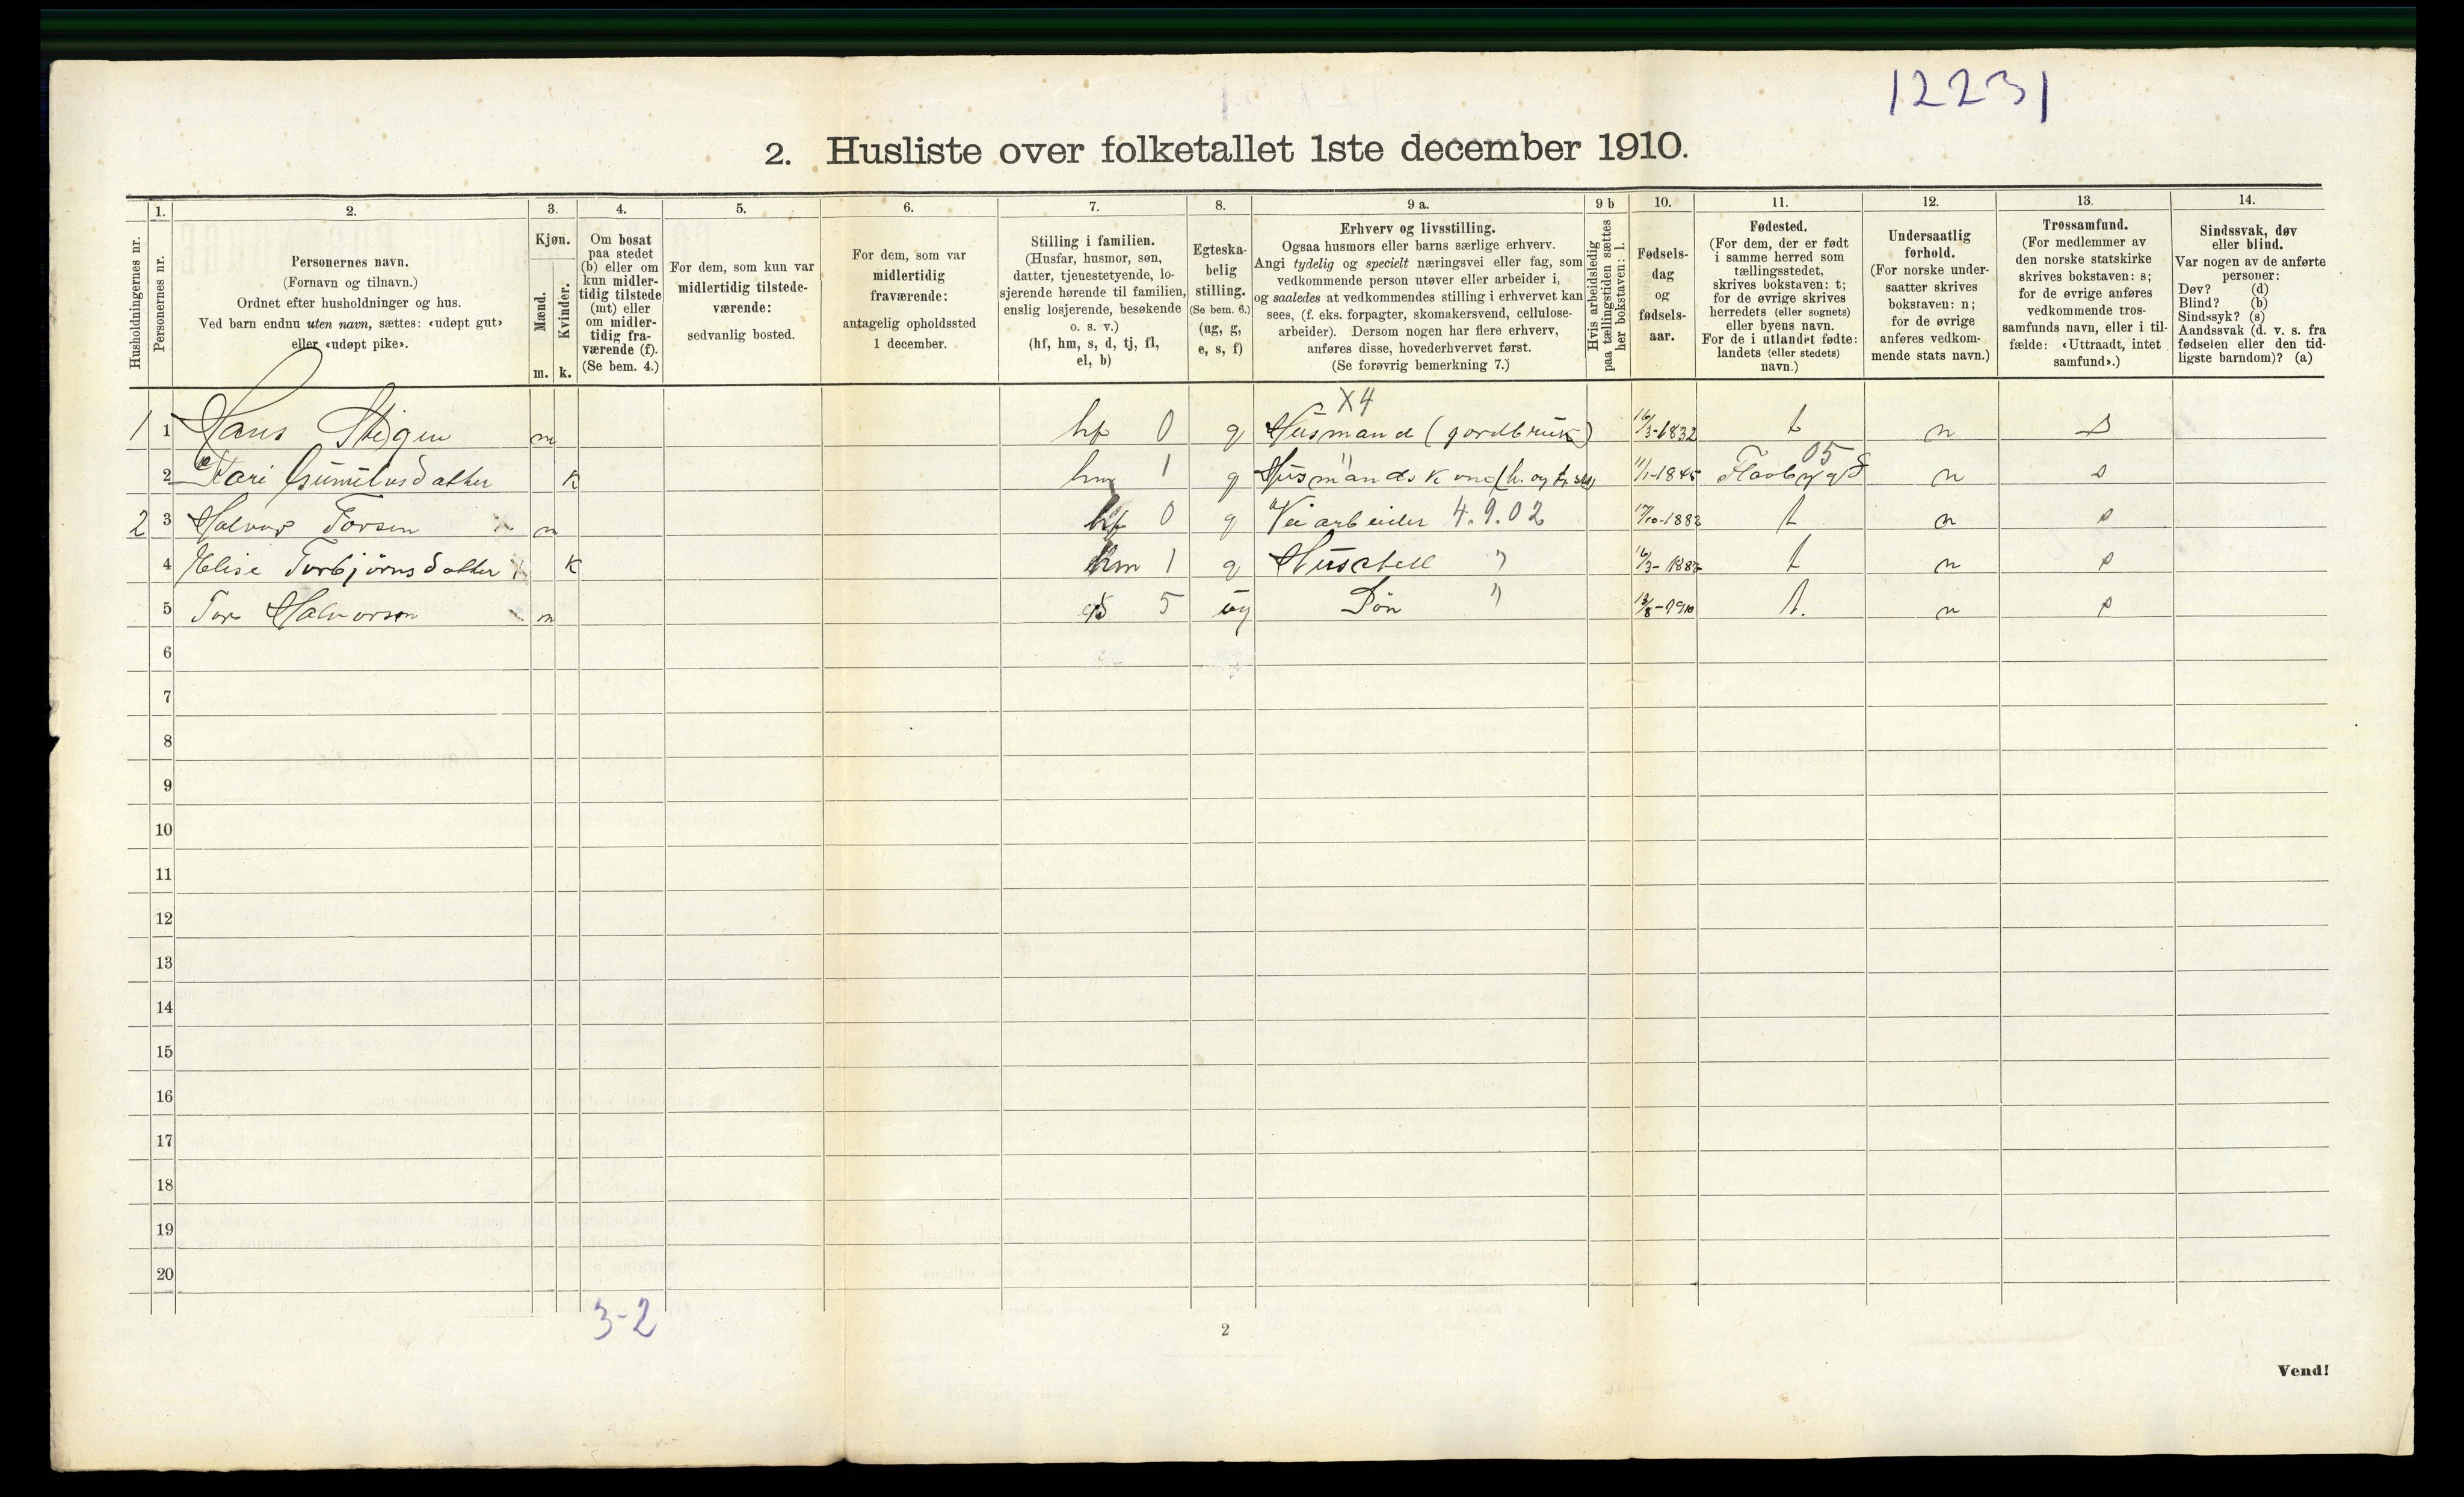 12231
2. Husliste over folketallet 1ste december 1910.
Husholdningernes nr.
1.
Personernes nr.
2.
Personernes navn.
(Fornavn og tilnavn.)
Ordnet efter husholdninger og hus.
Ved barn endnu uten navn, sættes: «udøpt gut»
eller «udøpt pike».
3.
Kjøn.
Mænd.
Kvinder.
m. k.
4.
Om bosat
paa stedet
(b) eller om
kun midler-
tidig tilstede
(mt) eller
om midler-
tidig fra-
værende (f).
(Se bem. 4.)
5.
For dem, som kun var
midlertidig tilstede-
værende:
sedvanlig bosted.
6.
For dem, som var
midlertidig
fraværende:
antagelig opholdssted
1 december.
7.
Stilling i familien.
(Husfar, husmor, søn,
datter, tjenestetyende, lo-
sjerende hørende til familien,
enslig losjerende, besøkende
o. s. v.)
(hf, hm, s, d, tj, fl,
el, b)
8.
Egteska-
belig
stilling.
(Se bem. 6.)
(ug, g,
e, s, f)
9 a.
Erhverv og livsstilling.
Ogsaa husmors eller barns særlige erhverv.
Angi tydelig og specielt næringsvei eller fag, som
vedkommende person utøver eller arbeider i,
og saaledes at vedkommendes stilling i erhvervet kan
sees, (f. eks. forpagter, skomakersvend, cellulose-
arbeider). Dersom nogen har flere erhverv,
anføres disse, hovederhvervet først.
(Se forøvrig bemerkning 7.)
9 b
Hvis arbeidsledig
paa tællingstiden sættes
her bokstaven: l.
10.
Fødsels-
dag
og
fødsels-
aar.
11.
Fødested.
(For dem, der er født
i samme herred som
tællingsstedet,
skrives bokstaven: t;
for de øvrige skrives
herredets (eller sognets)
eller byens navn.
For de i utlandet fødte:
landets (eller stedets)
navn.)
12.
Undersaatlig
forhold.
(For norske under-
saatter skrives
bokstaven: n;
for de øvrige
anføres vedkom-
mende stats navn.)
13.
Trossamfund.
(For medlemmer av
den norske statskirke
skrives bokstaven: s;
for de øvrige anføres
vedkommende tros-
samfunds navn, eller i til-
fælde: «Uttraadt, intet
samfund».)
14.
Sindssvak, døv
eller blind.
Var nogen av de anførte
personer:
Døv? (d)
Blind? (b)
Sindssyk? (s)
Aandssvak (d. v. s. fra
fødselen eller den tid-
ligste barndom)? (a)
X4
1 1 Hans Stigen m hf 0 g Husmand (gordbruk) 16/3-1832 t n s
05
2 Kari Gunulvsdatter k hm 1 g Husmandskone 11/1-1845 n s
2 3 Halvor Torsen m hf 0 g Veiarbeider 4.9.02 t n s
4 Elise Torbjørnsdatter k hm 1 g Husstell " t n s
5 Tor Halvorson m s 5 ug Søn " 13/8-1910 t. n s
6
7
8
9
10
11
12
13
14
15
16
17
18
19
20
3-2
2
Vend!